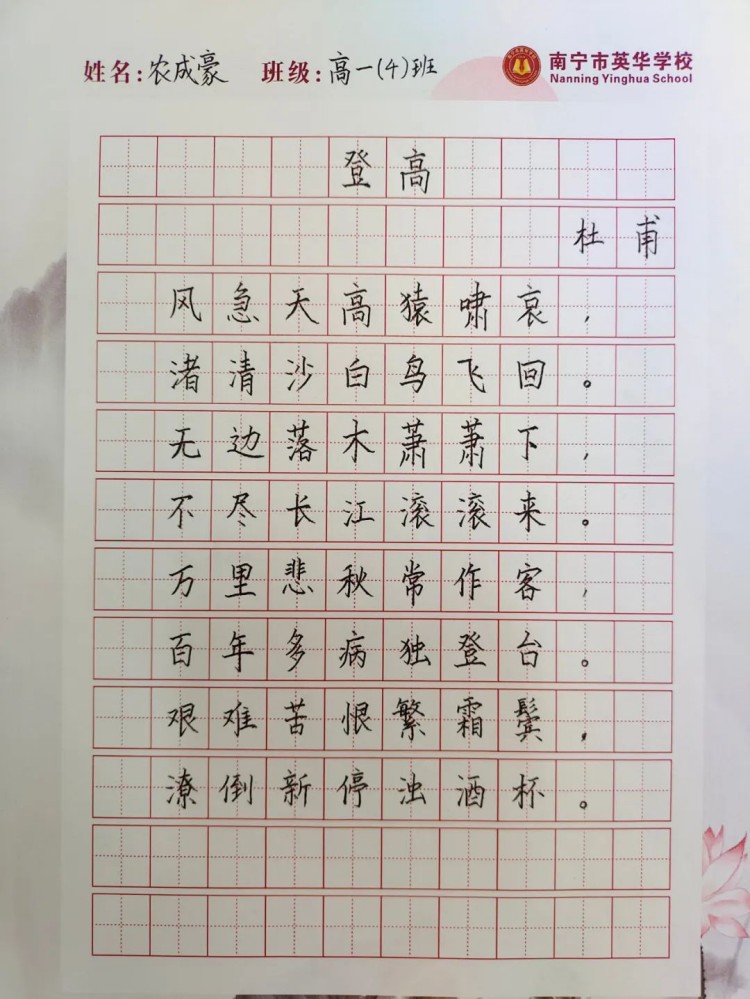 姓名：农成豪 班级：高一(4)班 南宁市英华学校
Nanning Yinghua School
登高
杜甫
风急天高猿啸哀，
渚清沙白鸟飞回。
无边落木萧萧下，
不尽长江滚滚来。
万里悲秋常作客，
百年多病独登台。
艰难苦恨繁霜鬓，
潦倒新停浊酒杯。